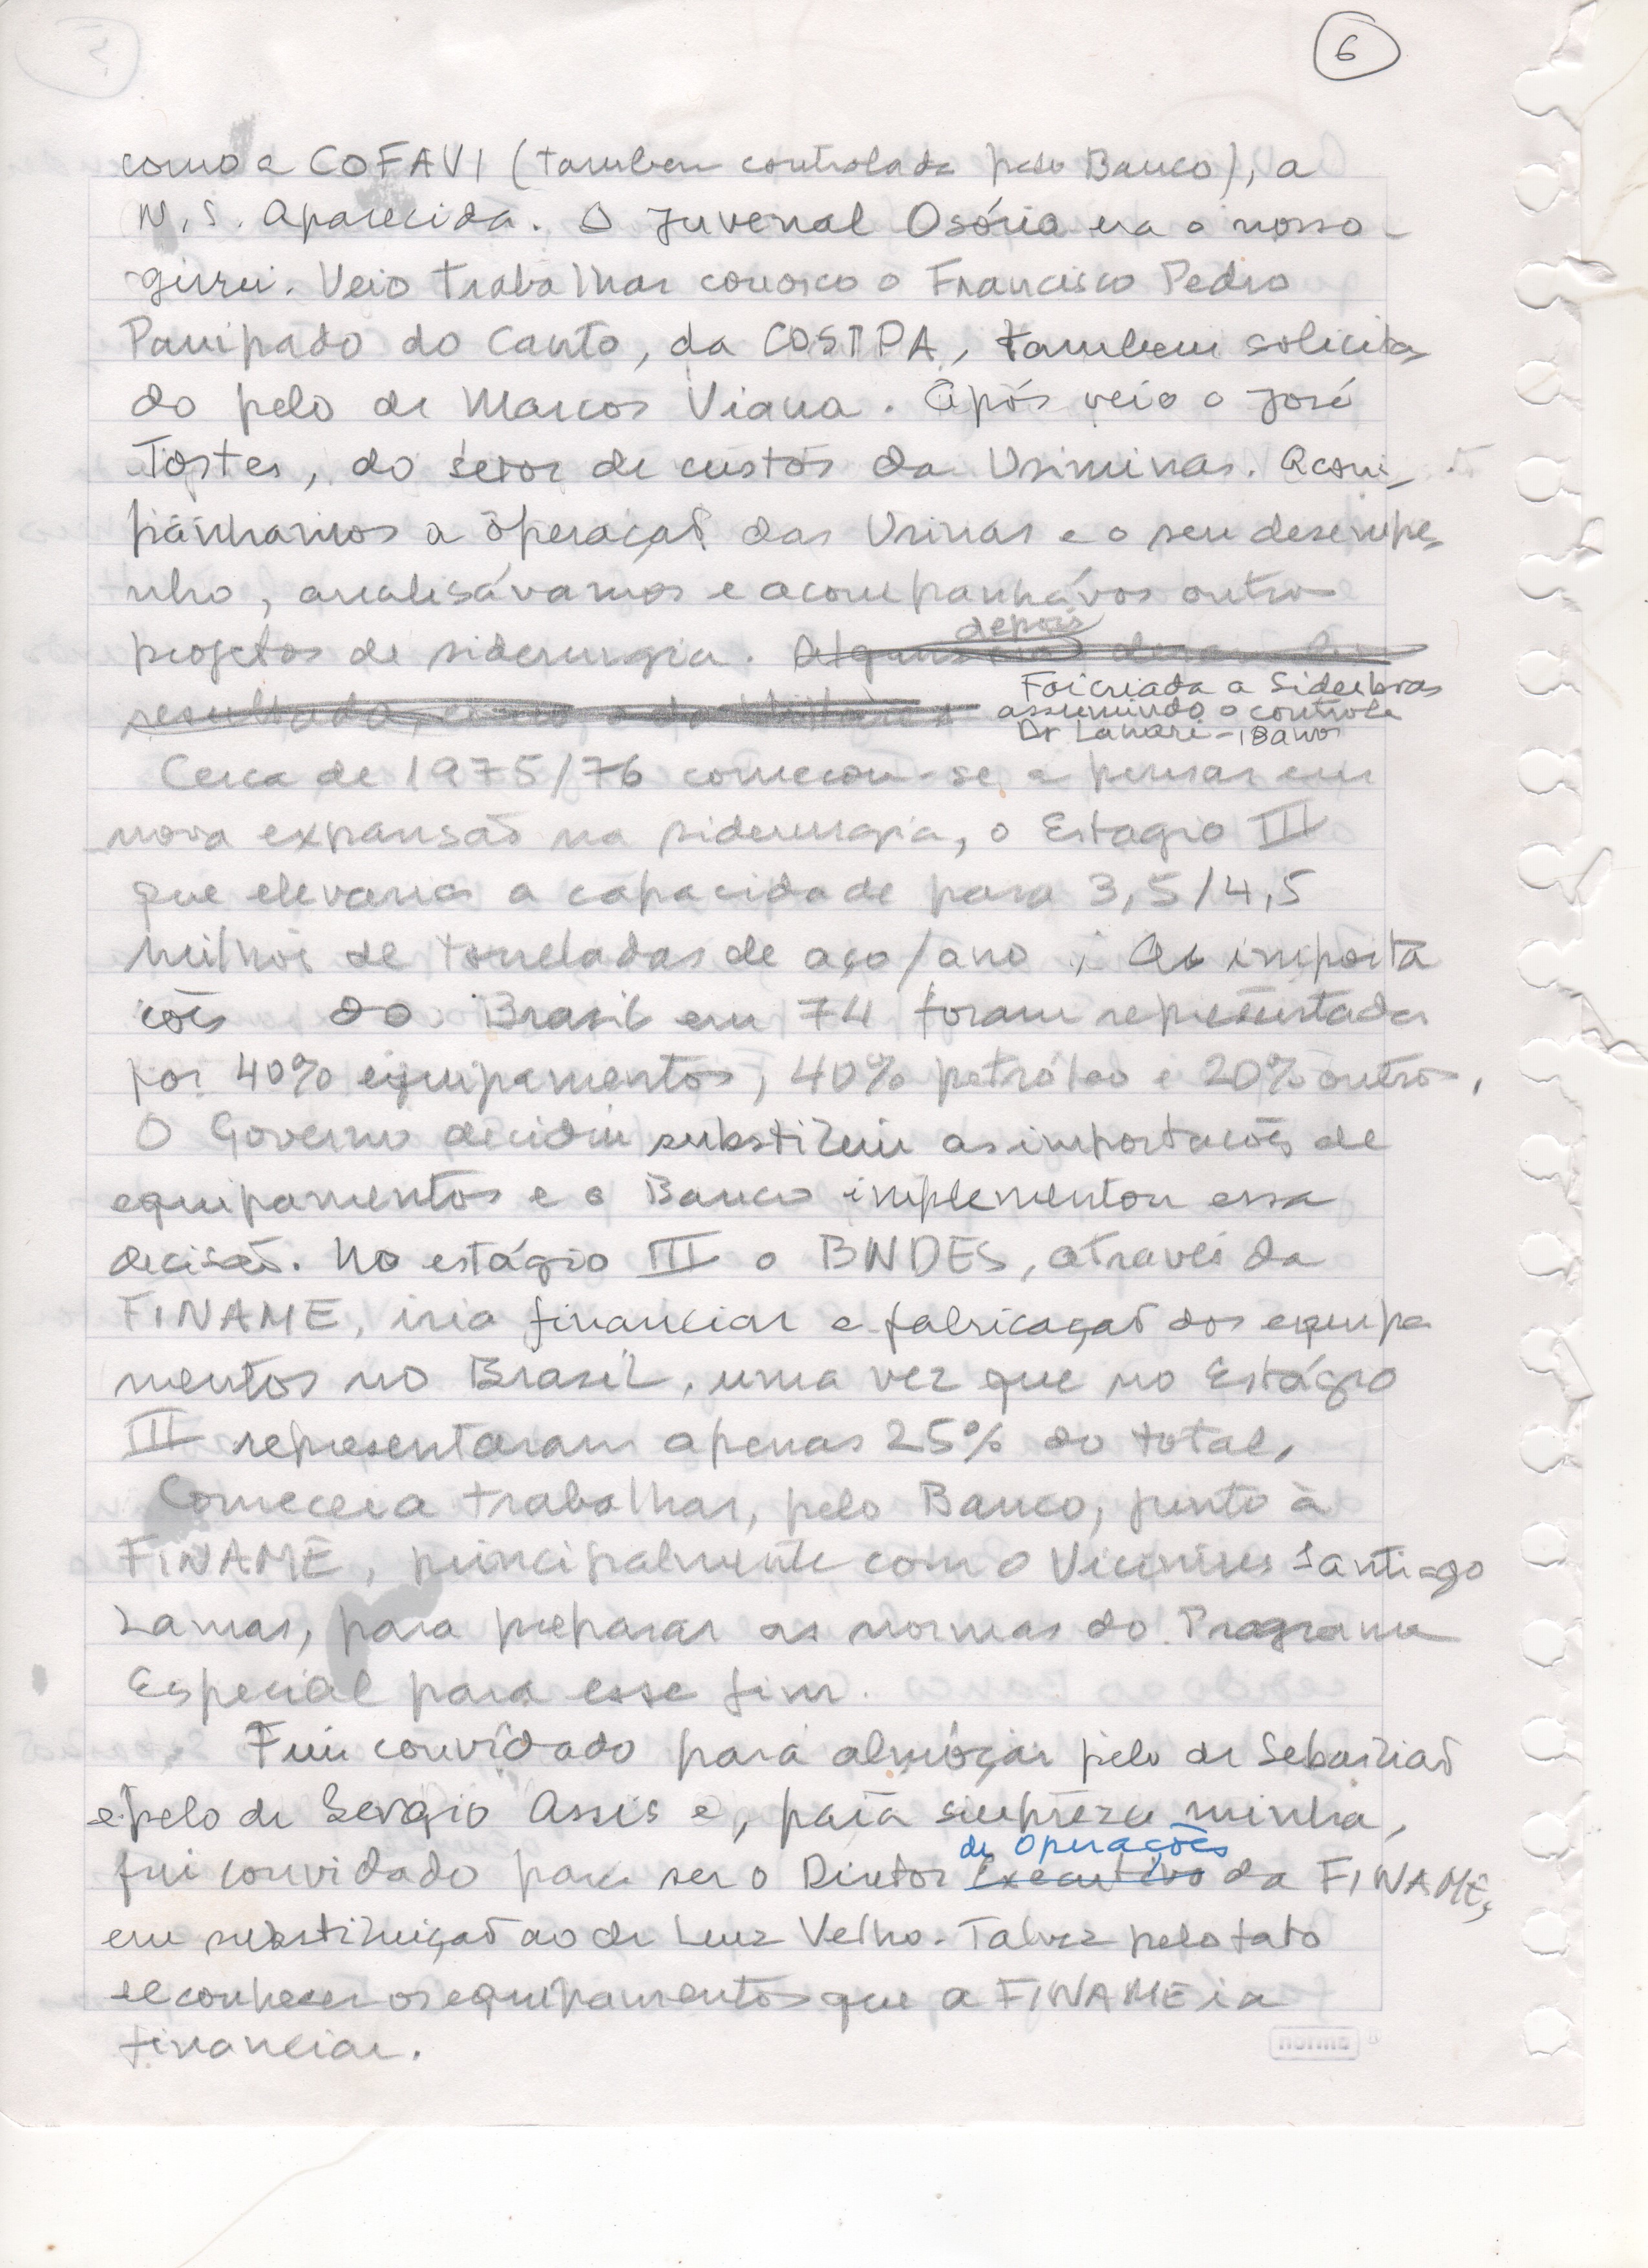 6
como a COFAVI (tambem controlada pelo Banco), a
N. S. Aparecida. O Juvenal Osório era o nosso
guru. Veio trabalhar conosco o Francisco Pedro
do Canto, da COSIPA, tambem solicita
do pelo dr Marcos Viana. Após veio o José
Tostes, do setor de custos da Usiminas. Acom
panhamos a operação das Usinas e o seu desempe
nho, analisávamos e acompanhávos outro
projetos de siderurgia. depois
Foi criada a Siderbras
assumindo o controle
Dr Lanari - 18 anos
Cerca de 1975/76 começou-se a pensar em
nova expansão na siderurgia, o Estagio III
que elevaria a capacidade para 3,5/4,5
milhões de toneladas de aço/ano. As importa
ções do Brasil em 74 foram representadas
por 40% equipamentos, 40% petróleo e 20% outros.
O Governo decidiu substituir as importações de
equipamentos e o Banco implementou essa
decisão. No estágio III o BNDES, através da
FINAME, iria financiar a fabricação dos equipa
mentos no Brasil, uma vez que no Estágio
III representaram apenas 25% do total.
Comecei a trabalhar, pelo Banco, junto à
FINAME, principalmente com o Vicinius Santiago
Lamas, para preparar as normas do Programa
Especial para esse fim.
Fui convidado para almoçar pelo dr Sebastião
e pelo dr Sergio Assis e, para surpreza minha,
de Operações
fui convidado para ser o Diretor Executivo da FINAME,
em substituição ao dr Luiz Velho. Talvez pelo fato
de conhecer os equipamentos que a FINAME ia
financiar.
norma